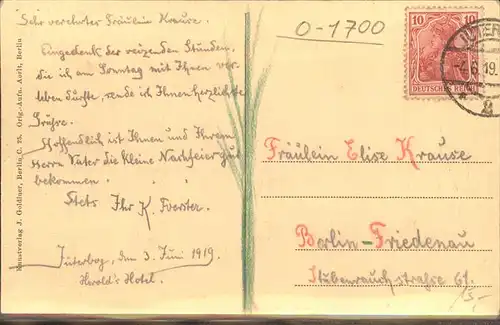 Sehr verehrtes Fräulein Krause.
Eingedenk der reizenden Stunden,
die ich am Sonntag mit Ihnen ver-
leben durfte, sende ich Ihnen herzlichste
Grüße.
Hoffentlich ist Ihnen und Ihrem
Herrn Vater die kleine Nachfeier gut
bekommen.
Stets Ihr K. Foerster.
Jüterbog, den 3. Juni 1919.
Herold's Hotel.
Kunstverlag J. Goldiner, Berlin C. 25. Orig.-Aufn. Anth, Berlin
0-1700
10 10
DEUTSCHES REICH
JÜTERB
6.19.
Fräulein Elise Krause
Berlin-Friedenau
Stubenrauchstraße 61.